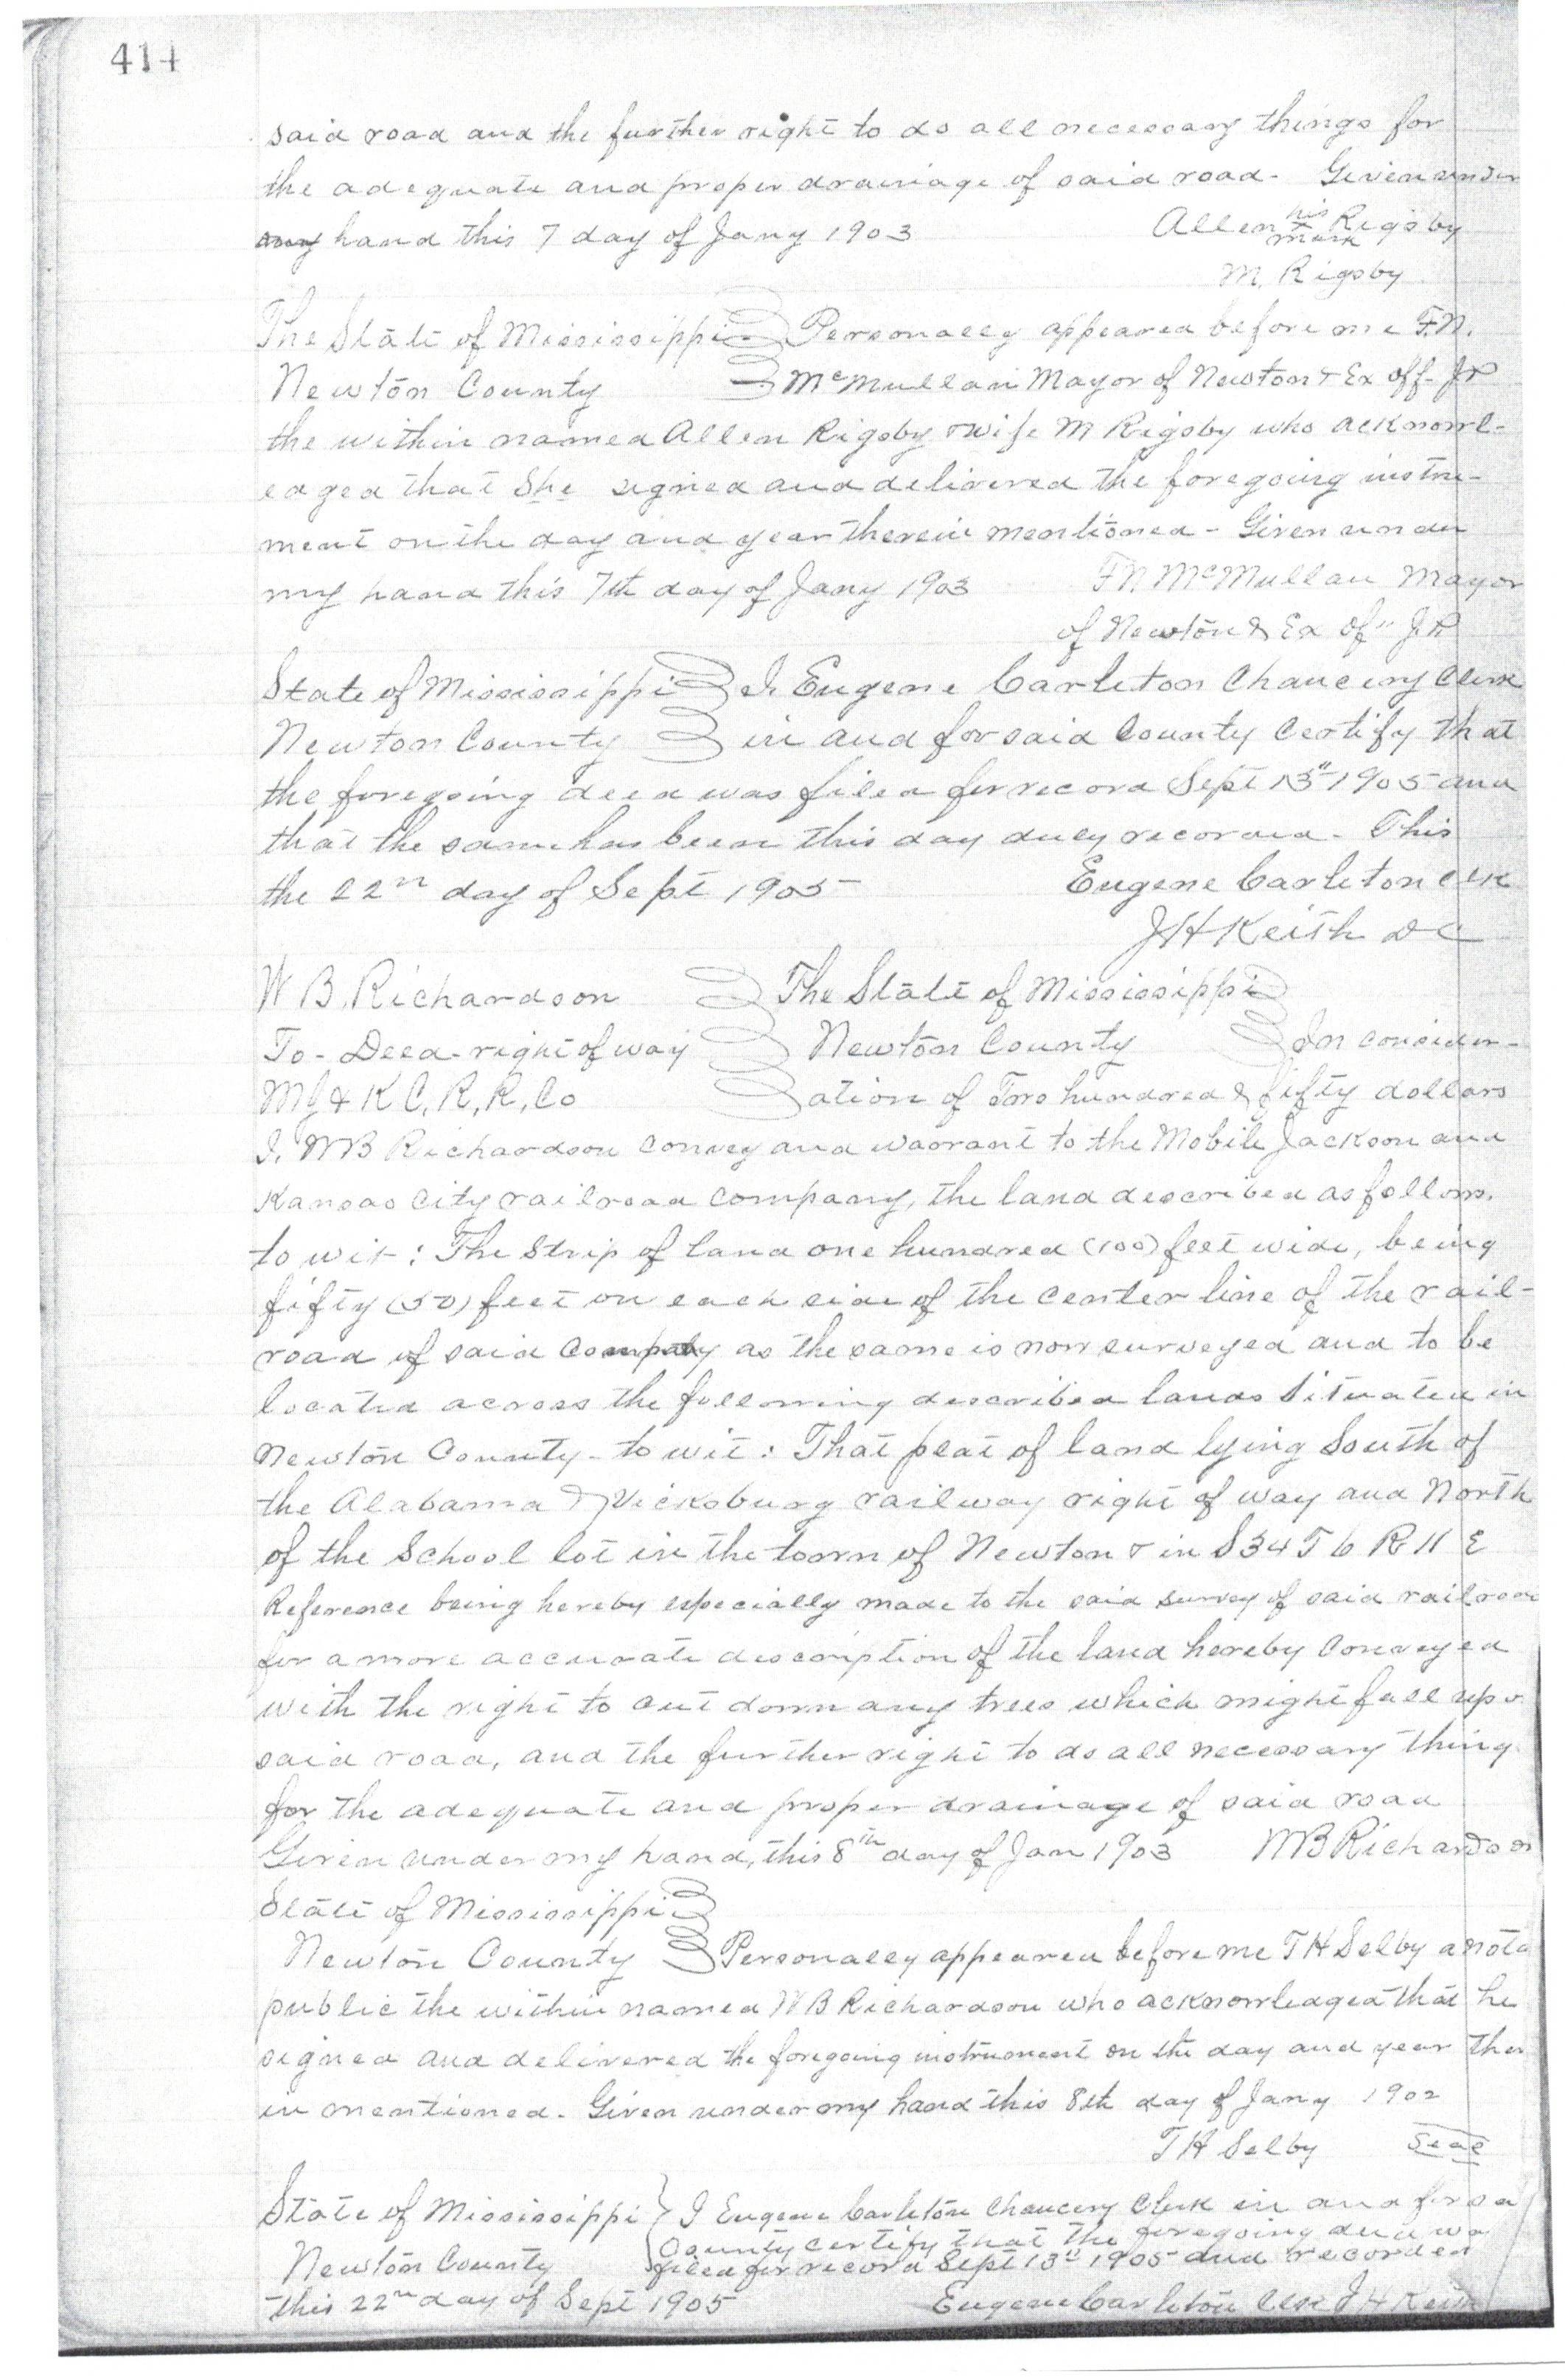 414
said road and the further right to do all necessary things for
the adequate and proper drainage of said road - Given under
my hand this 7 day of Jany 1903 Allen his x mark Rigsby
M. Rigsby
The State of Mississippi Personally appeared before me F.N.
Newton County McMullan Mayor of Newton & Ex off. JP
the within named Allen Rigsby & wife M Rigsby who acknowl-
edged that She signed and delivered the foregoing instru-
ment on the day and year therein mentioned - Given under
my hand this 7th day of Jany 1903 F.N. McMullan Mayor
of Newton & Ex Of" J.P.
State of Mississippi I. Eugene Carleton Chancery Clerk
Newton County in and for said County Certify that
the foregoing deed was filed for record Sept 13" 1905 and
that the same has been this day duly recorded - This
the 22nd day of Sept 1905 Eugene Carleton Clk
J H Keith DC
W B. Richardson The State of Mississippi
To - Deed - right of way Newton County In consider-
M J & K C, R, R, Co ation of Two hundred & fifty dollars
I, WB Richardson convey and warrant to the Mobile Jackson and
Kansas City railroad company, the land described as follows.
to wit: The Strip of land one hundred (100) feet wide, being
fifty (50) feet on each side of the center line of the rail-
road of said Company as the same is now surveyed and to be
located across the following described lands Situated in
Newton County - to wit: That plat of land lying South of
the Alabama & Vicksburg railway right of way and North
of the School lot in the town of Newton & in S34 T 6 R 11 E
Reference being hereby especially made to the said survey of said railroad
for a more accurate description of the land hereby Conveyed
with the right to cut down any trees which might fall upo
said road, and the further right to do all necessary thing
for the adequate and proper drainage of said road
Given under my hand, this 8th day of Jan 1903 WB Richardson
State of Mississippi
Newton County Personally appeared before me T H Selby a nota
public the within named W B Richardson who acknowledged that he
signed and delivered the foregoing instrument on the day and year ther
in mentioned. Given under my hand this 8th day of Jany 1902
T H Selby Seal
State of Mississippi I Eugene Carleton Chancery Clerk in and for sa
County certify that the foregoing deed wa
Newton County filed for record Sept 13" 1905 and recorded
this 22nd day of Sept 1905 Eugene Carleton Clk J H Keith